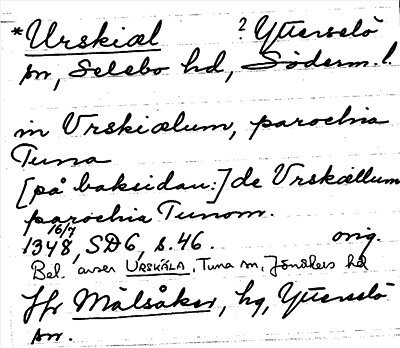 *Urskiæl ? Ytterselö
sn, Selebo hd, Söderm. l.
in Vrskiælum, parochia
Tuna
[på baksidan:] de Vrskællum
parochia Tunom.
16/7
1348, SD6, s. 46. orig.
Bel. avser URSKÄLA, Tuna sn, Jönåkers hd
Jfr Målsåker, hg, Ytterselö
sn.